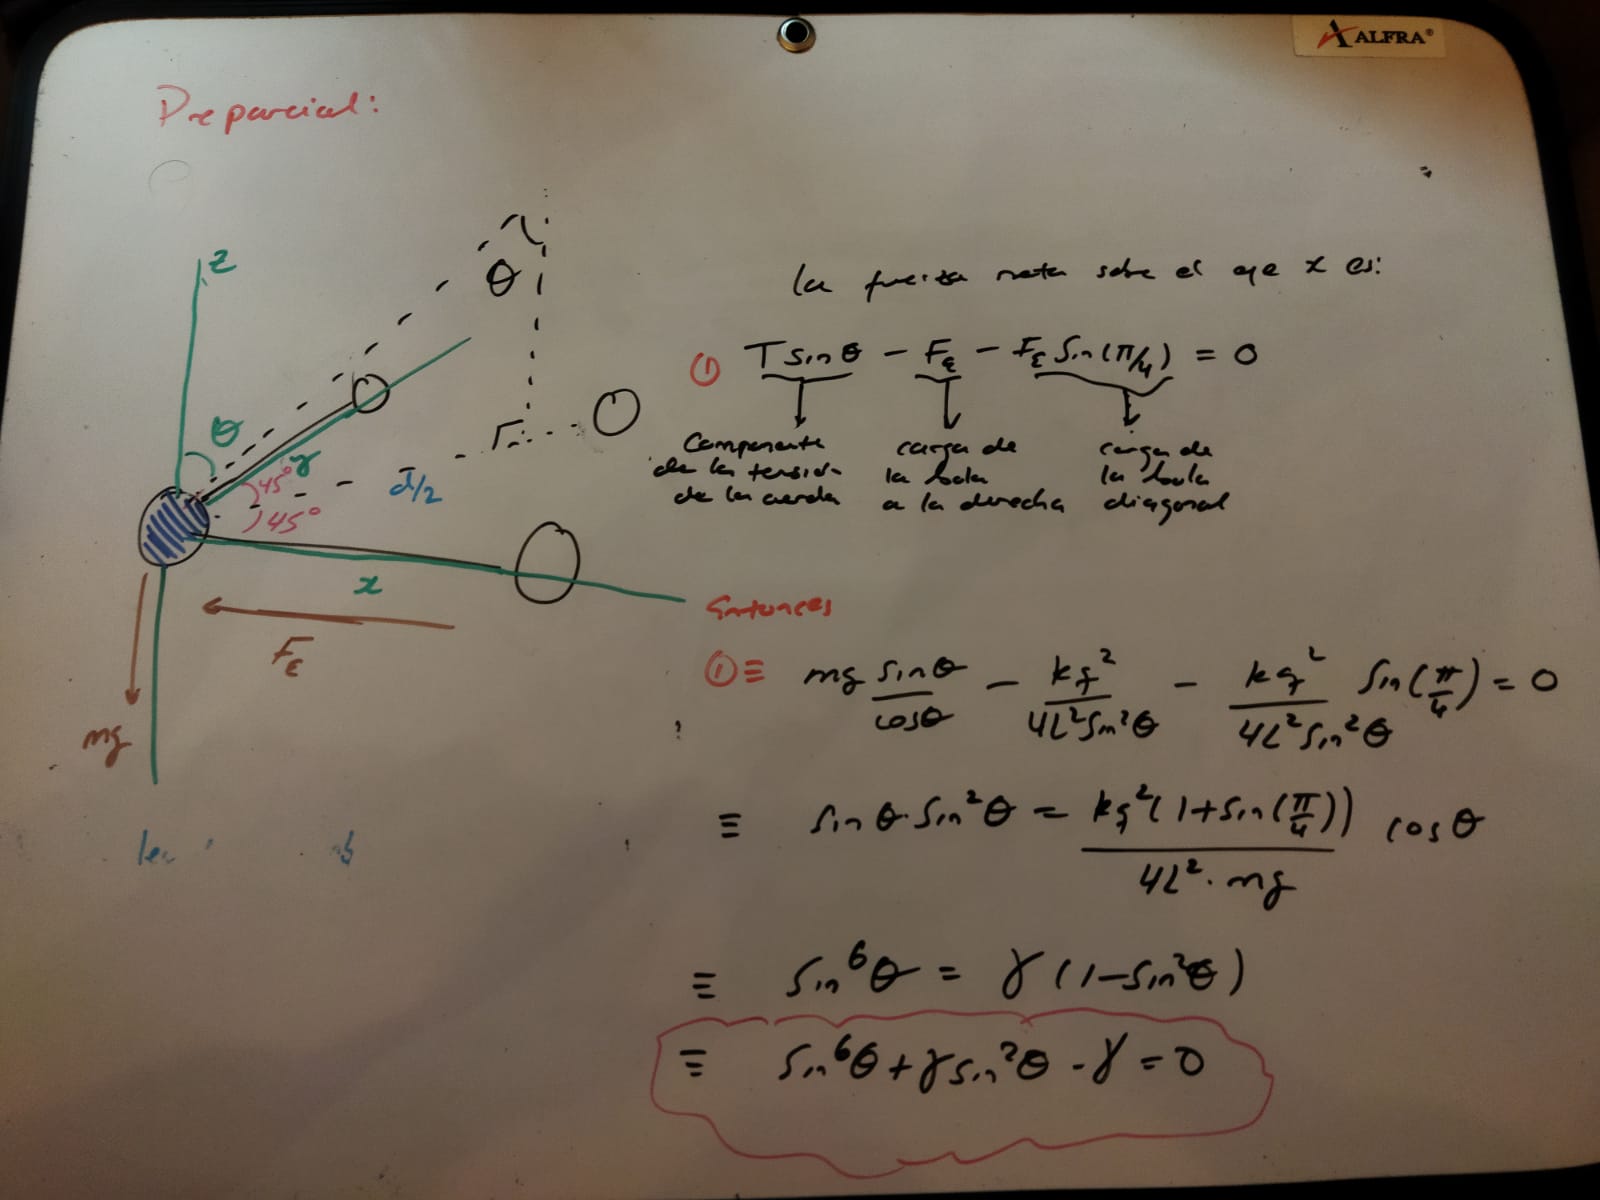 ALFRA®
Preparcial:
z
θ
θ
y
45°
45°
d/2
x
F_E
mg
la fuerza neta sobre el eje x es:
① T sin θ - F_E - F_E Sin(π/4) = 0
Componente de la tensión de la cuerda
carga de la bola a la derecha
carga de la bola diagonal
Entonces
① ≡ mg sinθ/cosθ - kq²/4L²Sin²θ - kq²/4L²Sin²θ Sin(π/4) = 0
≡ Sin θ·Sin²θ = kq²(1+Sin(π/4))/4L²·mg cos θ
≡ Sin⁶θ = γ(1-Sin²θ)
≡ Sin⁶θ + γsin²θ - γ = 0